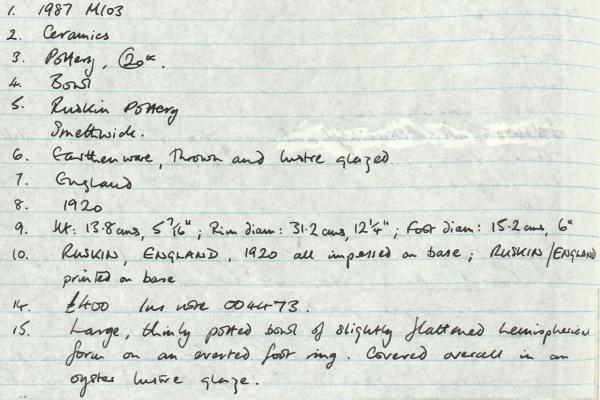 1. 1987 M103
2. Ceramics
3. Pottery, C20th.
4. Bowl
5. Ruskin Pottery
Smethwick.
6. Earthenware, thrown and lustre glazed
7. England
8. 1920
9. Ht: 13.8cms, 5 7/16"; Rim diam: 31.2cms, 12¼"; Foot diam: 15.2cms, 6"
10. RUSKIN, ENGLAND, 1920 all impressed on base; RUSKIN/ENGLAND
printed on base
14. £400 Ins note 004473.
15. Large, thinly potted bowl of slightly flattened hemispherical
form on an everted foot ring. Covered overall in an
oyster lustre glaze.